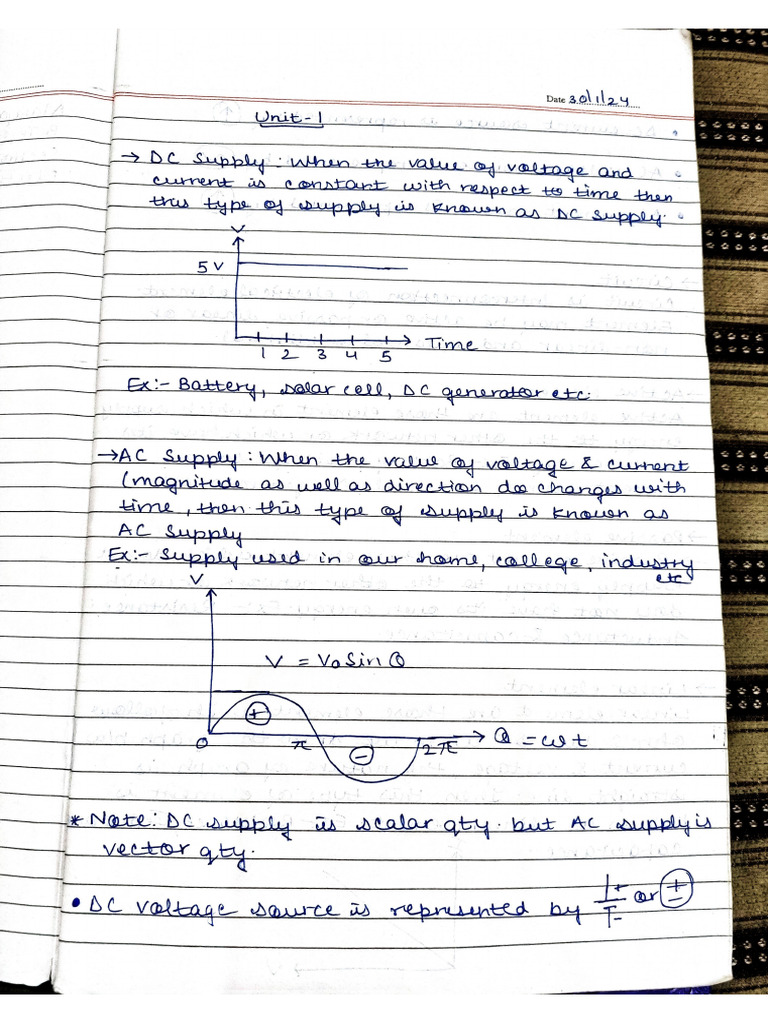 Date 30/1/24
Unit-1
→ DC Supply: When the value of voltage and
current is constant with respect to time then
this type of supply is known as DC supply.
V
5V
1 2 3 4 5 Time
Ex:- Battery, solar cell, DC generator etc.
→AC Supply: When the value of voltage & current
(magnitude as well as direction do changes with
time, then this type of supply is known as
AC Supply
Ex:- Supply used in our home, college, industry
etc
V
V = V₀ Sin θ
+
0 π 2π θ = ωt
-
* Note: DC supply is scalar qty. but AC supply is
vector qty.
• DC voltage source is represented by + - or + -